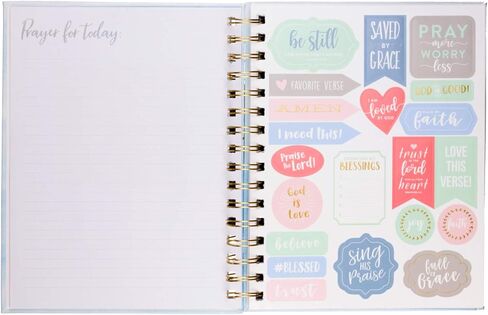 Prayer for today:
be still
SAVED
BY
GRACE
PRAY
more
WORRY
less
FAVORITE VERSE
GOD IS GOOD!
AMEN
I AM
loved
BY GOD
faith
I need this!
Praise
the Lord!
BLESSINGS
TRUST
in the
Lord
with all your
heart
LOVE
THIS
VERSE!
God
is
Love
joy
faith
believe
#BLESSED
trust
sing
HIS
Praise
full
of
Grace